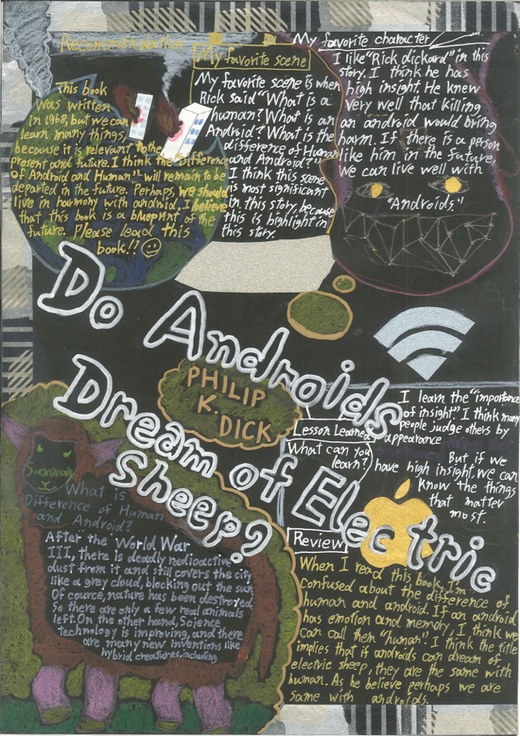 My favorite scene
My favorite scene is when
Rick said "What is a
human? What is an
Android? What is the
difference of Human
and Android?"
I think this scene
is most significant
in this story, because
this is highlight in
this story.
My favorite character
I like "Rick dickard" in this
story. I think he has
high insight. He knew
very well that killing
an android would bring
harm. If there is a person
like him in the future,
We can live well with
"Androids."
This book
was written
in 1968, but we can
learn many things,
because it is relevant to the
present and future. I think the "Difference
of Android and Human" will remain to be
departed in the future. Perhaps, we should
live in harmony with android. I believe
that this book is a blueprint of the
future. Please leard this
book!!
Do Androids
Dream of Electric
Sheep?
PHILIP
K.
DICK
Lesson Learned
What can you
learn?
I learn the "importance
of insight" I think many
people judge others by
appearance
But if we
have high insight, we can
know the things
that matter
most.
Summary
What is
Difference of Human
and Android?
After the World War
III, there is deadly radioactive
dust from it and still covers the city
like a grey cloud, blocking out the sun
Of cource, nature has been destroyed,
So there are only a few real animals
left. On the other hand, Science
Technology is improving, and there
are many new inventions like
hybrid creatures, including
Review
When I read this book, I'm
confused about the difference of
human and android. If an android
has emotion and memory, I think we
can call them "human". I think the title
implies that if androids can dream of
electric sheep, they are the same with
human. As he believe perhaps we are
same with androids.